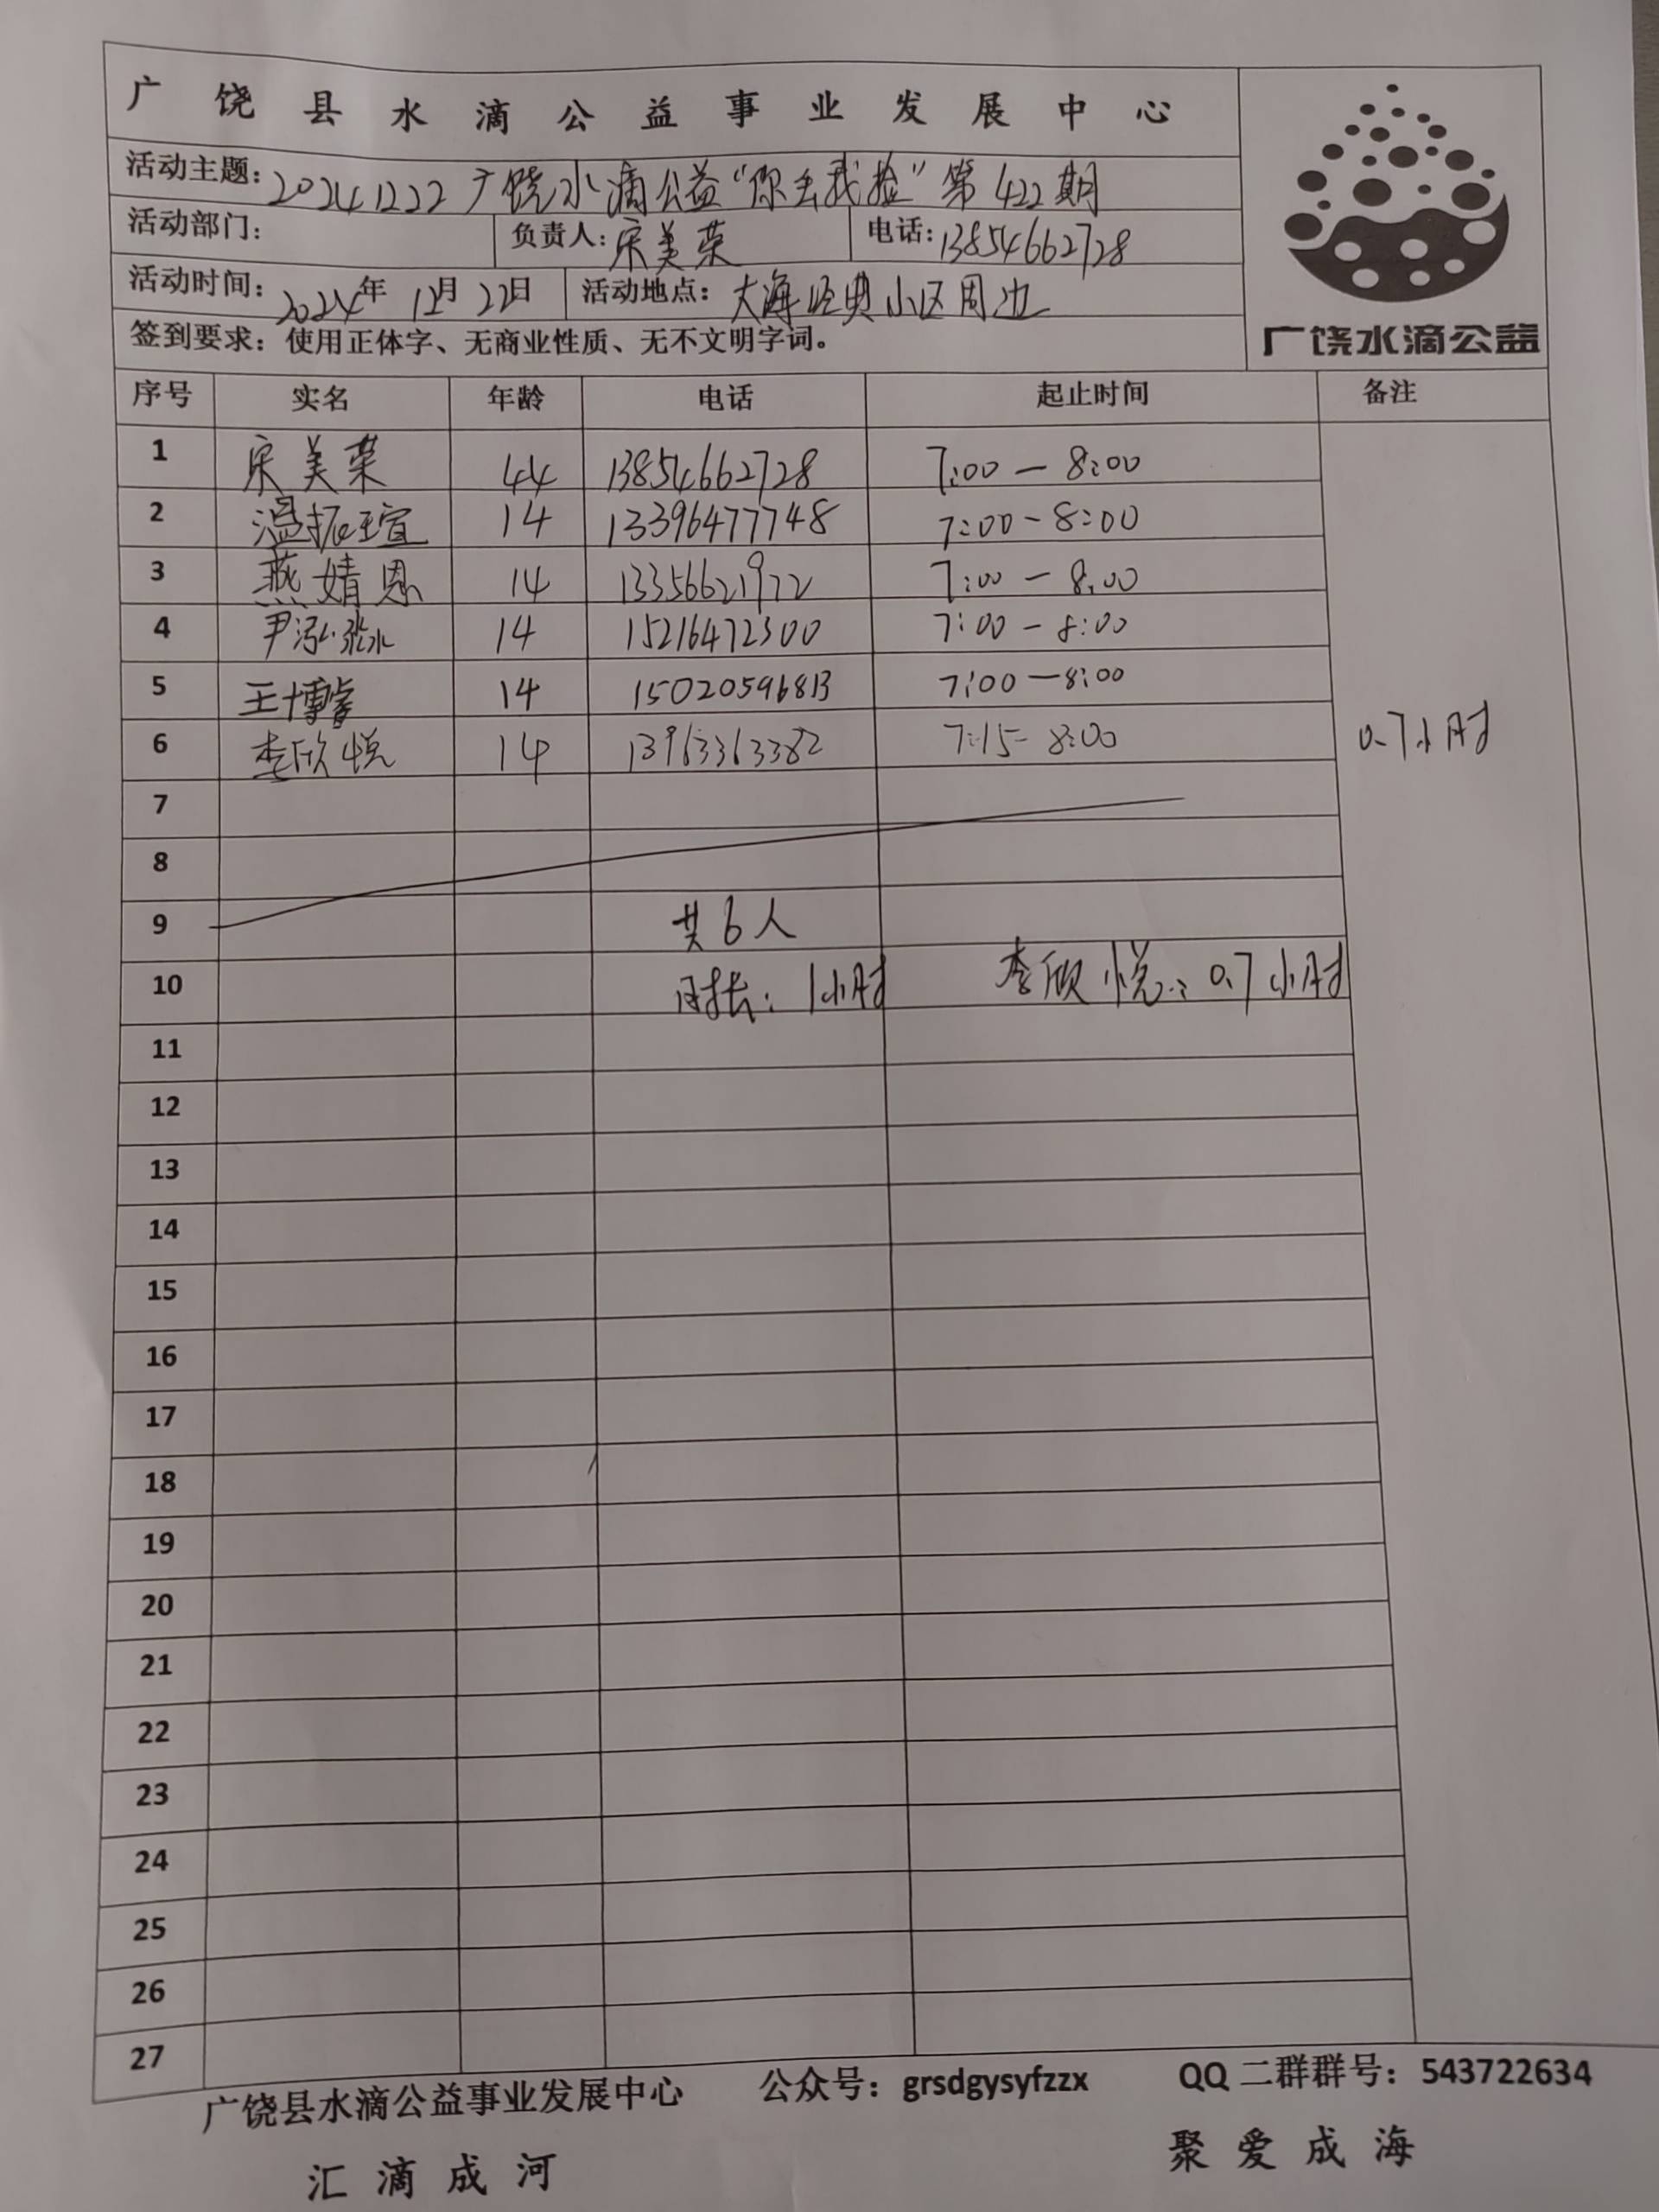 广饶县水滴公益事业发展中心
活动主题：20241222广饶水滴公益“你丢我捡”第422期
活动部门： 负责人：宋美荣 电话：13854662728
活动时间：2024年12月22日 活动地点：大海经典小区周边
签到要求：使用正体字、无商业性质、无不文明字词。
广饶水滴公益
序号 实名 年龄 电话 起止时间 备注
1 宋美荣 44 13854662728 7:00—8:00
2 温振瑄 14 13396477748 7:00-8:00
3 燕婧恩 14 13356621972 7:00—8:00
4 尹泓淼 14 15216472300 7:00-8:00
5 王博睿 14 15020596813 7:00—8:00
6 李欣悦 14 13963363382 7:15-8:00 0.7小时
7
8
9 共6人
10 时长：1小时 李欣悦：0.7小时
11
12
13
14
15
16
17
18
19
20
21
22
23
24
25
26
27
广饶县水滴公益事业发展中心 公众号：grsdgysyfzzx QQ二群群号：543722634
汇滴成河 聚爱成海